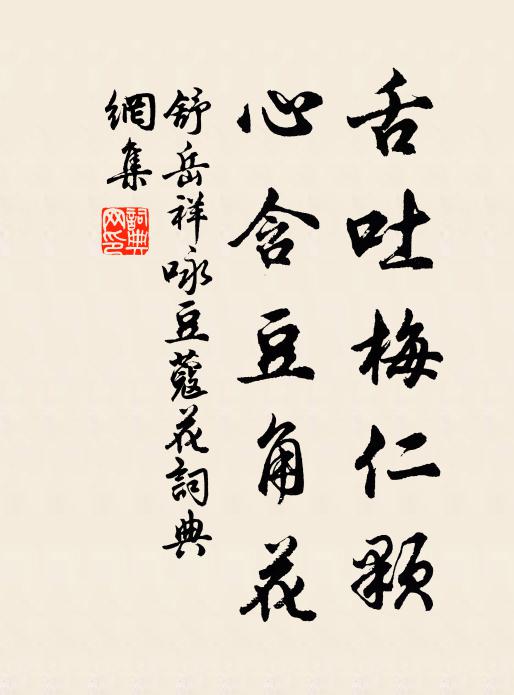 舌吐梅仁顆
心含豆角花
舒岳祥咏豆蔻花詞典
網集
詞典
网印